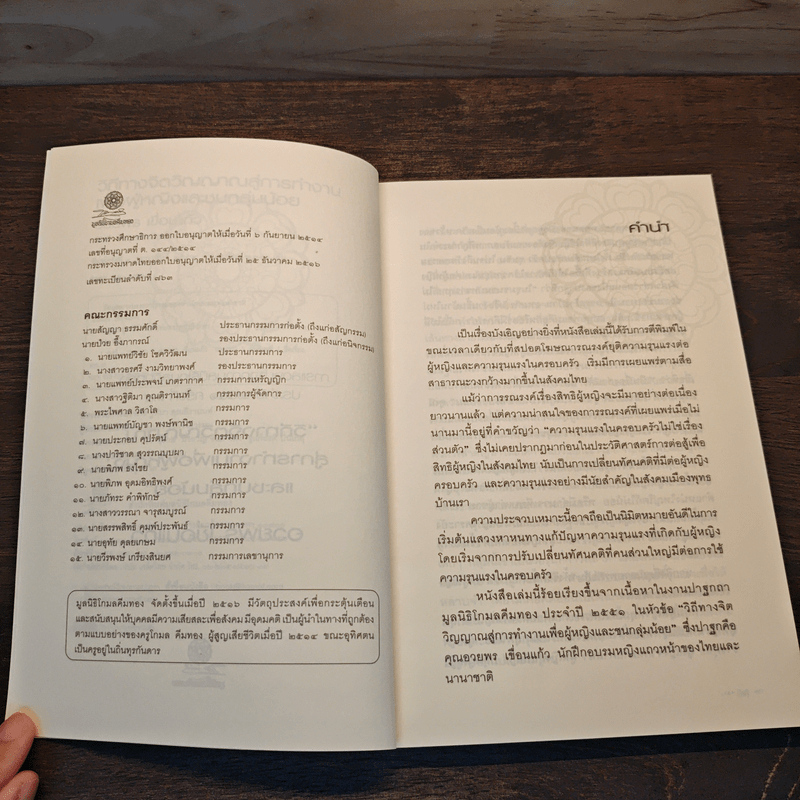 มูลนิธิโกมลคีมทอง
กระทรวงศึกษาธิการ ออกใบอนุญาตให้เมื่อวันที่ ๖ กันยายน ๒๕๑๔
เลขที่อนุญาตที่ ต. ๑๔๔/๒๕๑๔
กระทรวงมหาดไทยออกใบอนุญาตให้เมื่อวันที่ ๒๕ ธันวาคม ๒๕๑๖
เลขทะเบียนลำดับที่ ๗๖๓
คณะกรรมการ
นายสัญญา ธรรมศักดิ์ ประธานกรรมการก่อตั้ง (ถึงแก่อสัญกรรม)
นายป๋วย อึ๊งภากรณ์ รองประธานกรรมการก่อตั้ง (ถึงแก่อนิจกรรม)
๑. นายแพทย์วิชัย โชควิวัฒน ประธานกรรมการ
๒. นางสาวอรศรี งามวิทยาพงศ์ รองประธานกรรมการ
๓. นายแพทย์ประพจน์ เภตรากาศ กรรมการเหรัญญิก
๔. นางสาวฐิติมา คุณติรานนท์ กรรมการผู้จัดการ
๕. พระไพศาล วิสาโล กรรมการ
๖. นายแพทย์บัญชา พงษ์พานิช กรรมการ
๗. นายประกอบ คุปรัตน์ กรรมการ
๘. นางปาริชาต สุวรรณบุบผา กรรมการ
๙. นายพิภพ ธงไชย กรรมการ
๑๐. นายพิภพ อุดมอิทธิพงศ์ กรรมการ
๑๑. นายภัทระ คำพิทักษ์ กรรมการ
๑๒. นางสาววรรณา จารุสมบูรณ์ กรรมการ
๑๓. นายสรรพสิทธิ์ คุมพ์ประพันธ์ กรรมการ
๑๔. นายอุทัย ดุลยเกษม กรรมการ
๑๕. นายวีรพงษ์ เกรียงสินยศ กรรมการเลขานุการ
มูลนิธิโกมลคีมทอง จัดตั้งขึ้นเมื่อปี ๒๕๑๖ มีวัตถุประสงค์เพื่อกระตุ้นเตือน
และสนับสนุนให้บุคคลมีความเสียสละเพื่อสังคม มีอุดมคติ เป็นผู้นำในทางที่ถูกต้อง
ตามแบบอย่างของครูโกมล คีมทอง ผู้สูญเสียชีวิตเมื่อปี ๒๕๑๔ ขณะอุทิศตน
เป็นครูอยู่ในถิ่นทุรกันดาร
คำนำ
เป็นเรื่องบังเอิญอย่างยิ่งที่หนังสือเล่มนี้ได้รับการตีพิมพ์ใน
ขณะเวลาเดียวกับที่สปอตโฆษณารณรงค์ยุติความรุนแรงต่อ
ผู้หญิงและความรุนแรงในครอบครัว เริ่มมีการเผยแพร่ตามสื่อ
สาธารณะวงกว้างมากขึ้นในสังคมไทย
แม้ว่าการรณรงค์เรื่องสิทธิผู้หญิงจะมีมาอย่างต่อเนื่อง
ยาวนานแล้ว แต่ความน่าสนใจของการรณรงค์ที่เผยแพร่เมื่อไม่
นานมานี้อยู่ที่คำขวัญว่า “ความรุนแรงในครอบครัวไม่ใช่เรื่อง
ส่วนตัว” ซึ่งไม่เคยปรากฏมาก่อนในประวัติศาสตร์การต่อสู้เพื่อ
สิทธิผู้หญิงในสังคมไทย นับเป็นการเปลี่ยนทัศนคติที่มีต่อผู้หญิง
ครอบครัว และความรุนแรงอย่างมีนัยสำคัญในสังคมเมืองพุทธ
บ้านเรา
ความประจวบเหมาะนี้อาจถือเป็นนิมิตหมายอันดีในการ
เริ่มต้นแสวงหาหนทางแก้ปัญหาความรุนแรงที่เกิดกับผู้หญิง
โดยเริ่มจากการปรับเปลี่ยนทัศนคติที่คนส่วนใหญ่มีต่อการใช้
ความรุนแรงในครอบครัว
หนังสือเล่มนี้ร้อยเรียงขึ้นจากเนื้อหาในงานปาฐกถา
มูลนิธิโกมลคีมทอง ประจำปี ๒๕๕๑ ในหัวข้อ “วิถีทางจิต
วิญญาณสู่การทำงานเพื่อผู้หญิงและชนกลุ่มน้อย” ซึ่งปาฐกคือ
คุณอวยพร เขื่อนแก้ว นักฝึกอบรมหญิงแถวหน้าของไทยและ
นานาชาติ